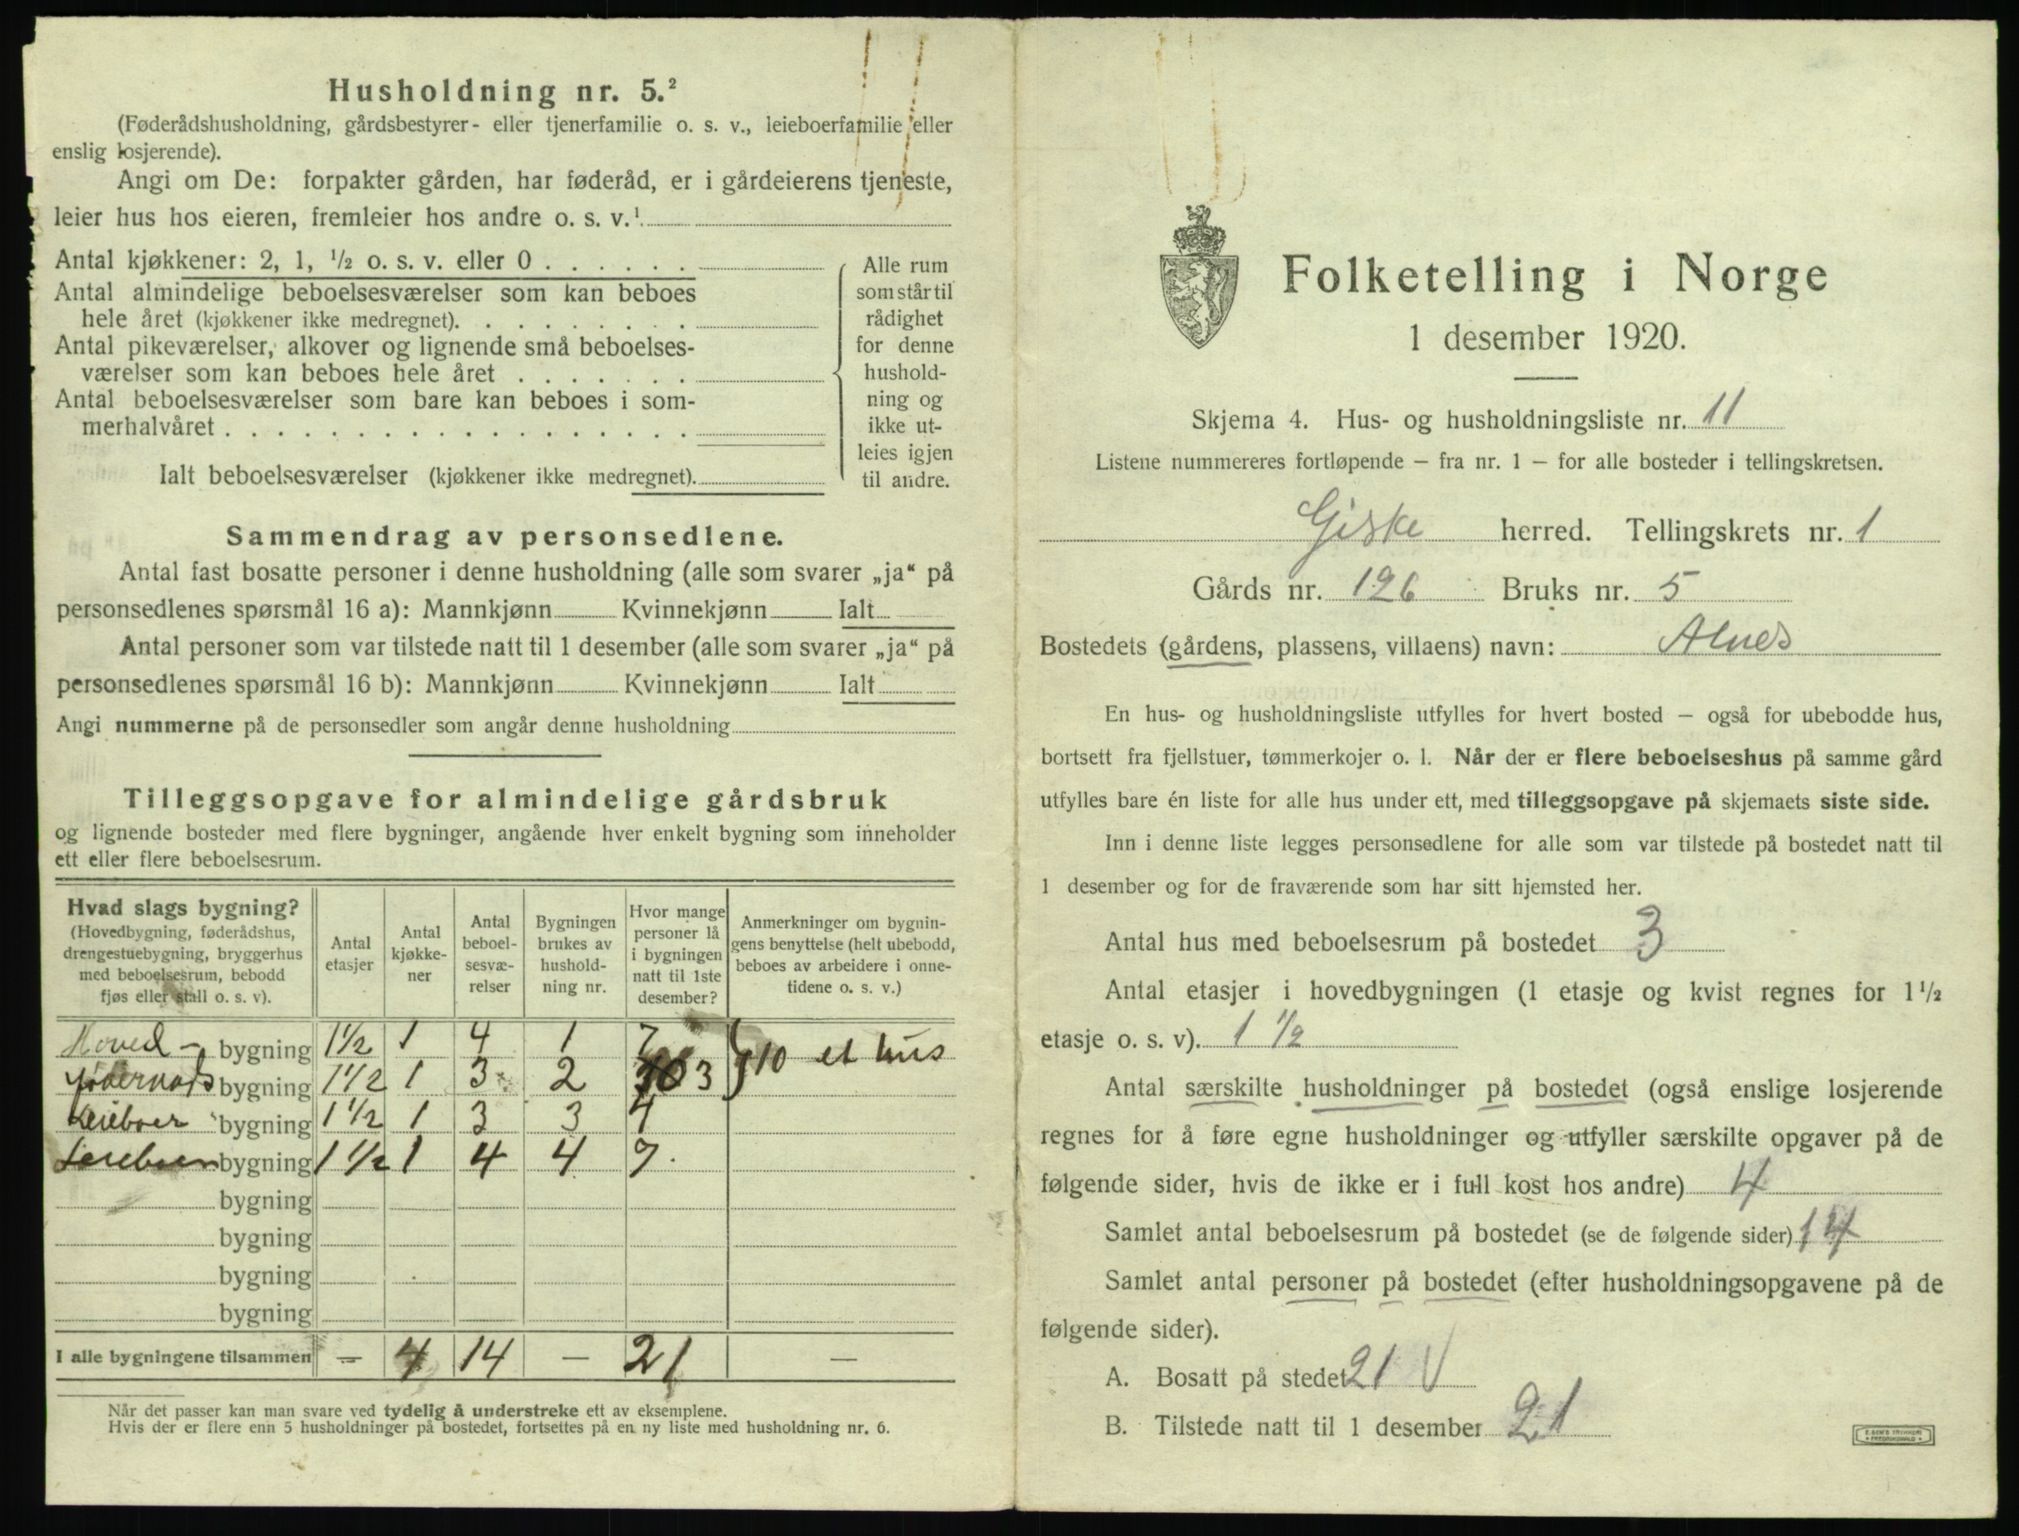 Husholdning nr. 5.²
(Føderådshusholdning, gårdsbestyrer- eller tjenerfamilie o. s. v., leieboerfamilie eller
enslig losjerende).
Angi om De: forpakter gården, har føderåd, er i gårdeierens tjeneste,
leier hus hos eieren, fremleier hos andre o. s. v.¹
Antal kjøkkener: 2, 1, ½ o. s. v. eller 0 . . . . . .
Antal almindelige beboelsesværelser som kan beboes
hele året (kjøkkener ikke medregnet). . . . . . . . .
Antal pikeværelser, alkover og lignende små beboelses-
værelser som kan beboes hele året . . . . . . .
Antal beboelsesværelser som bare kan beboes i som-
merhalvåret . . . . . . . . . . . . . . . . . .
Ialt beboelsesværelser (kjøkkener ikke medregnet).
Alle rum
som står til
rådighet
for denne
hushold-
ning og
ikke ut-
leies igjen
til andre.
Sammendrag av personsedlene.
Antal fast bosatte personer i denne husholdning (alle som svarer „ja“ på
personsedlenes spørsmål 16 a): Mannkjønn Kvinnekjønn Ialt
Antal personer som var tilstede natt til 1 desember (alle som svarer „ja“ på
personsedlenes spørsmål 16 b): Mannkjønn Kvinnekjønn Ialt
Angi nummerne på de personsedler som angår denne husholdning
Tilleggsopgave for almindelige gårdsbruk
og lignende bosteder med flere bygninger, angående hver enkelt bygning som inneholder
ett eller flere beboelsesrum.
Hvad slags bygning?
(Hovedbygning, føderådshus,
drengestuebygning, bryggerhus
med beboelsesrum, bebodd
fjøs eller stall o. s. v).
Antal
etasjer
Antal
kjøkke-
ner
Antal
beboel-
sesvæ-
relser
Bygningen
brukes av
hushold-
ning nr.
Hvor mange
personer lå
i bygningen
natt til 1ste
desember?
Anmerkninger om bygnin-
gens benyttelse (helt ubebodd,
beboes av arbeidere i onne-
tidene o. s. v.)
Hoved- bygning 1½ 1 4 1 7 } 10 et hus
bygning 1½ 1 3 2 3
Leieboer bygning 1½ 1 3 3 4
bygning 1½ 1 4 4 7
bygning
bygning
bygning
bygning
I alle bygningene tilsammen – 4 14 – 21 –
Når det passer kan man svare ved tydelig å understreke ett av eksemplene.
Hvis der er flere enn 5 husholdninger på bostedet, fortsettes på en ny liste med husholdning nr. 6.
Folketelling i Norge
1 desember 1920.
Skjema 4. Hus- og husholdningsliste nr. 11
Listene nummereres fortløpende – fra nr. 1 – for alle bosteder i tellingskretsen.
Giske herred. Tellingskrets nr. 1
Gårds nr. 126 Bruks nr. 5
Bostedets (gårdens, plassens, villaens) navn: Alnes
En hus- og husholdningsliste utfylles for hvert bosted – også for ubebodde hus,
bortsett fra fjellstuer, tømmerkojer o. l. Når der er flere beboelseshus på samme gård
utfylles bare én liste for alle hus under ett, med tilleggsopgave på skjemaets siste side.
Inn i denne liste legges personsedlene for alle som var tilstede på bostedet natt til
1 desember og for de fraværende som har sitt hjemsted her.
Antal hus med beboelsesrum på bostedet 3
Antal etasjer i hovedbygningen (1 etasje og kvist regnes for 1½
etasje o. s. v). 1 ½
Antal særskilte husholdninger på bostedet (også enslige losjerende
regnes for å føre egne husholdninger og utfyller særskilte opgaver på de
følgende sider, hvis de ikke er i full kost hos andre) 4
Samlet antal beboelsesrum på bostedet (se de følgende sider) 14
Samlet antal personer på bostedet (efter husholdningsopgavene på de
følgende sider).
A. Bosatt på stedet 21 V
B. Tilstede natt til 1 desember 21